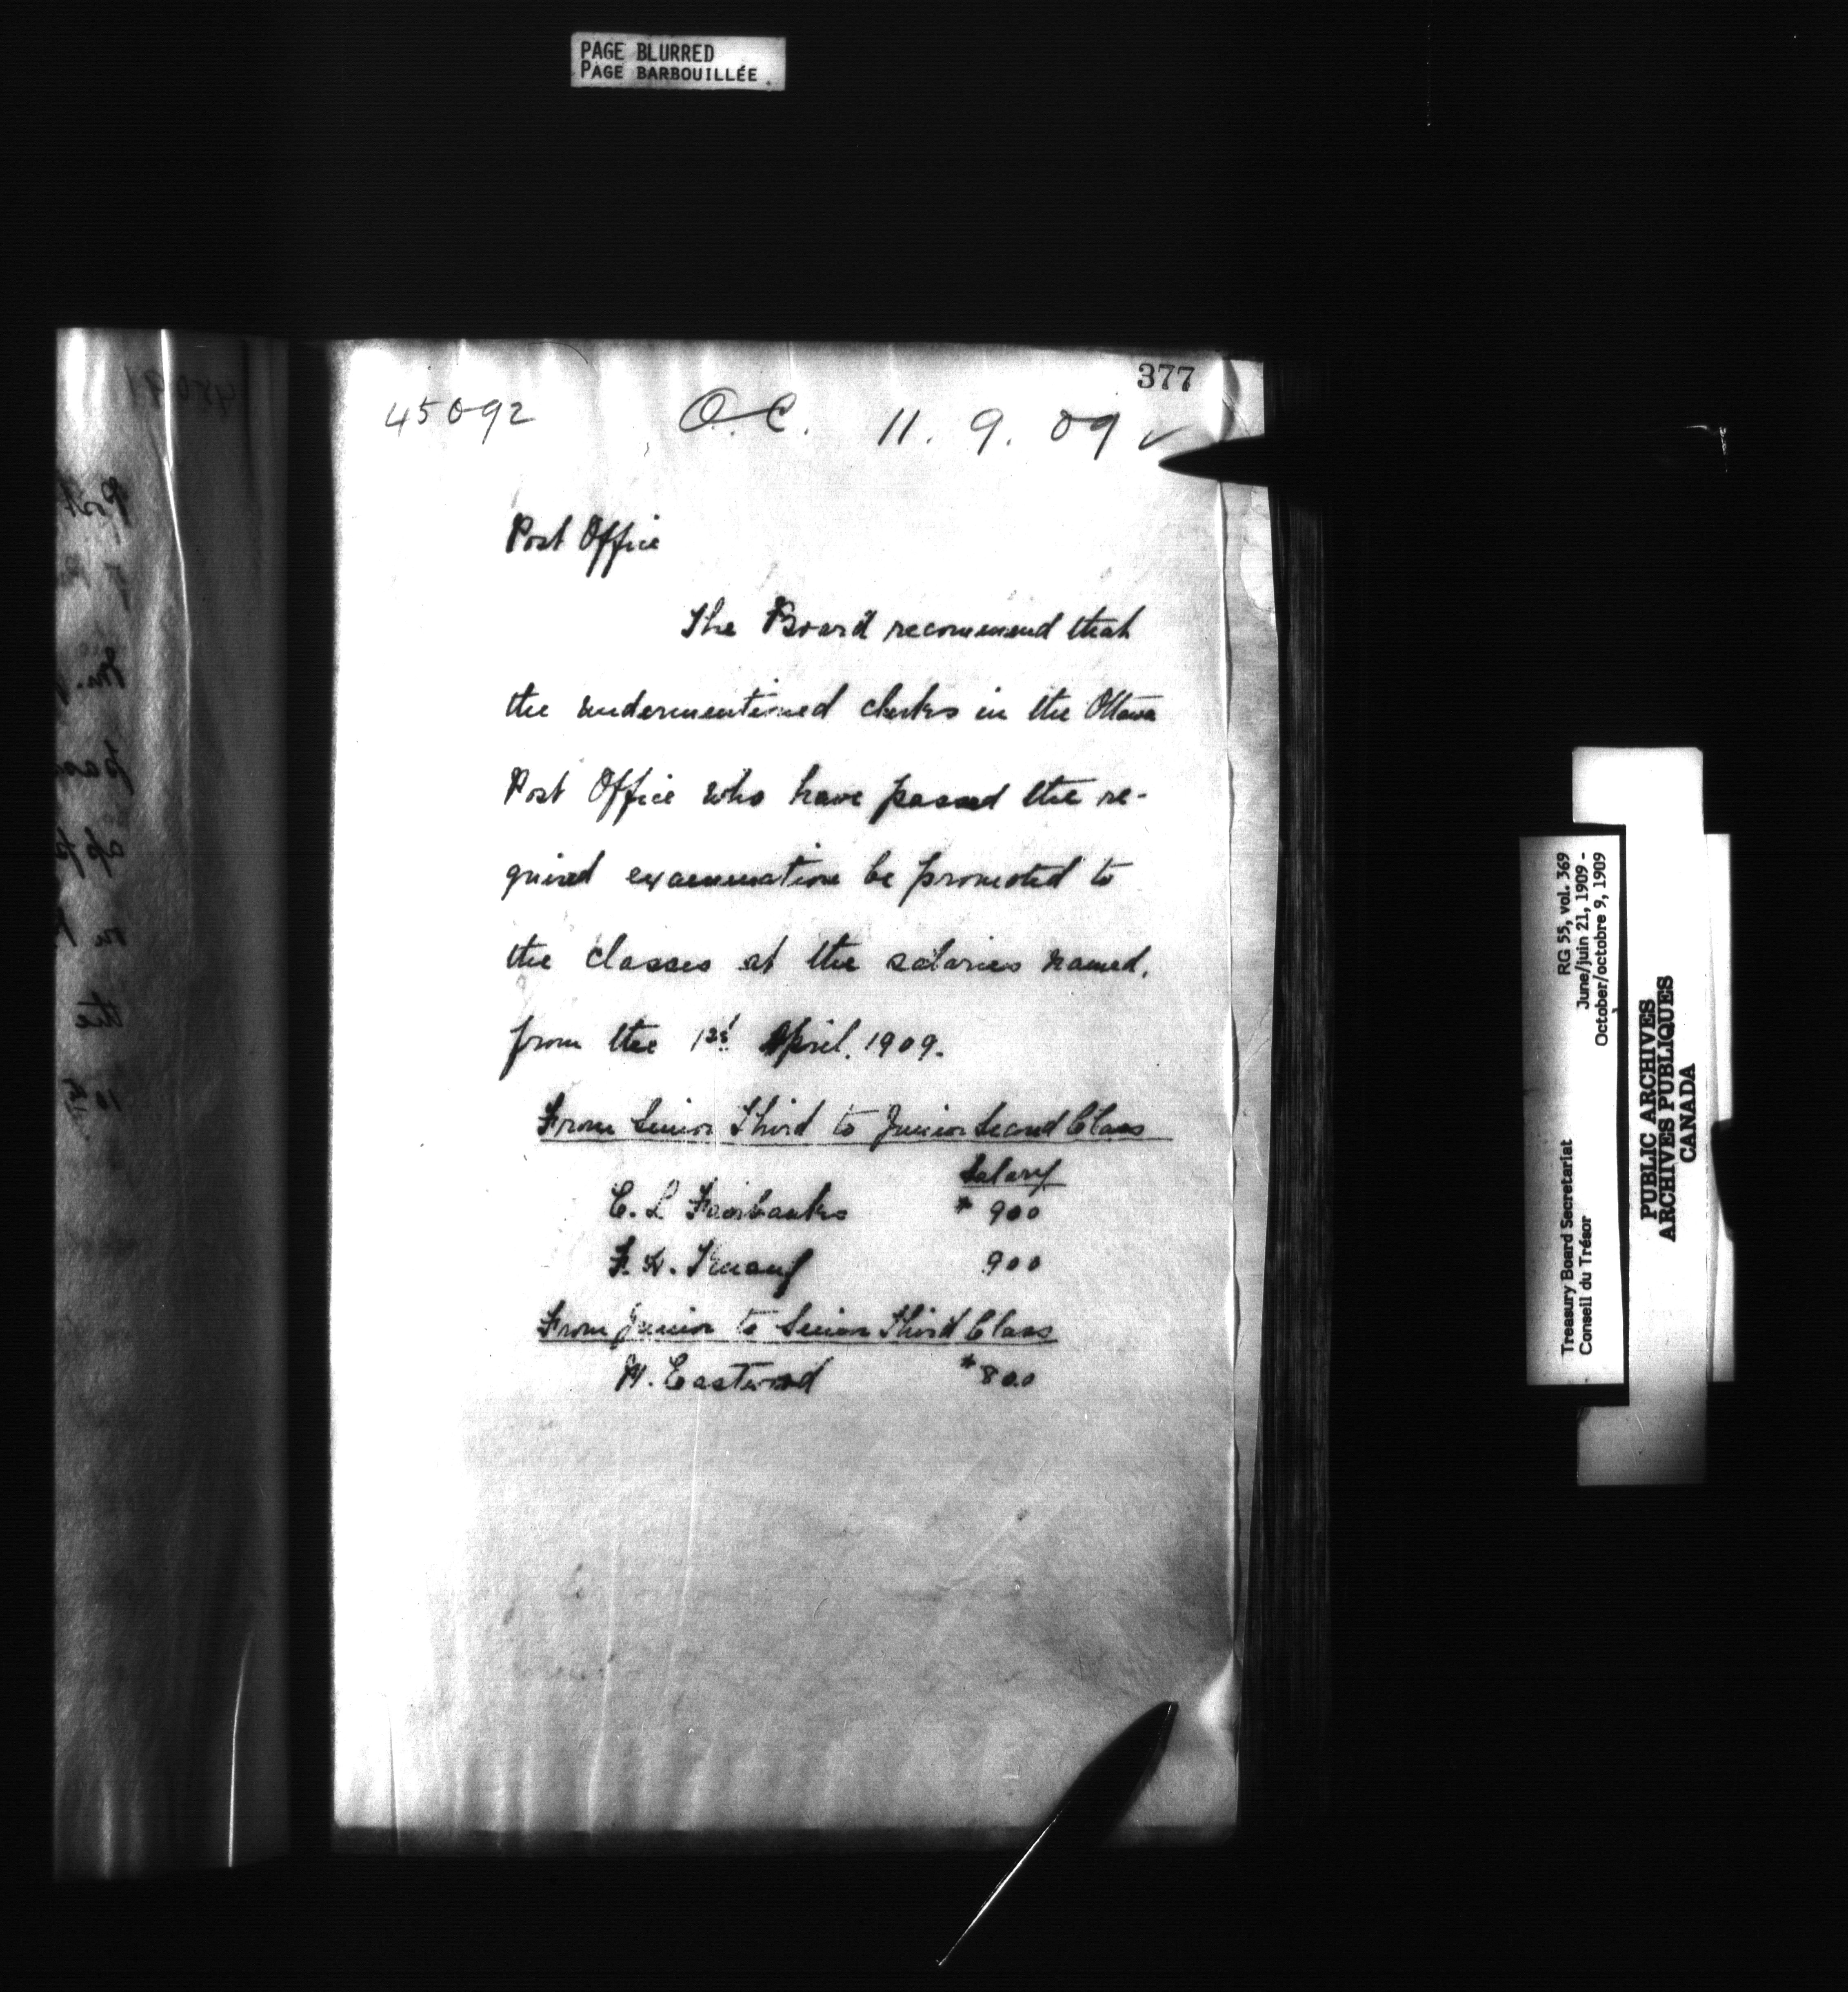 PAGE BLURRED
PAGE BARBOUILLÉE
377
45092 O.C. 11. 9. 09 ✓
Post Office
The Board recommend that
the undermentioned clerks in the Ottawa
Post Office who have passed the re-
quired examination be promoted to
the classes at the salaries named,
from the 1st April. 1909.
From Senior Third to Junior Second Class
Salary
C. L Fairbanks $ 900
F. 900
From Junior to Senior Third Class
Eastwood $ 800
RG 55, vol. 369
June/juin 21, 1909 -
October/octobre 9, 1909
Treasury Board Secretariat
Conseil du Trésor
PUBLIC ARCHIVES
ARCHIVES PUBLIQUES
CANADA